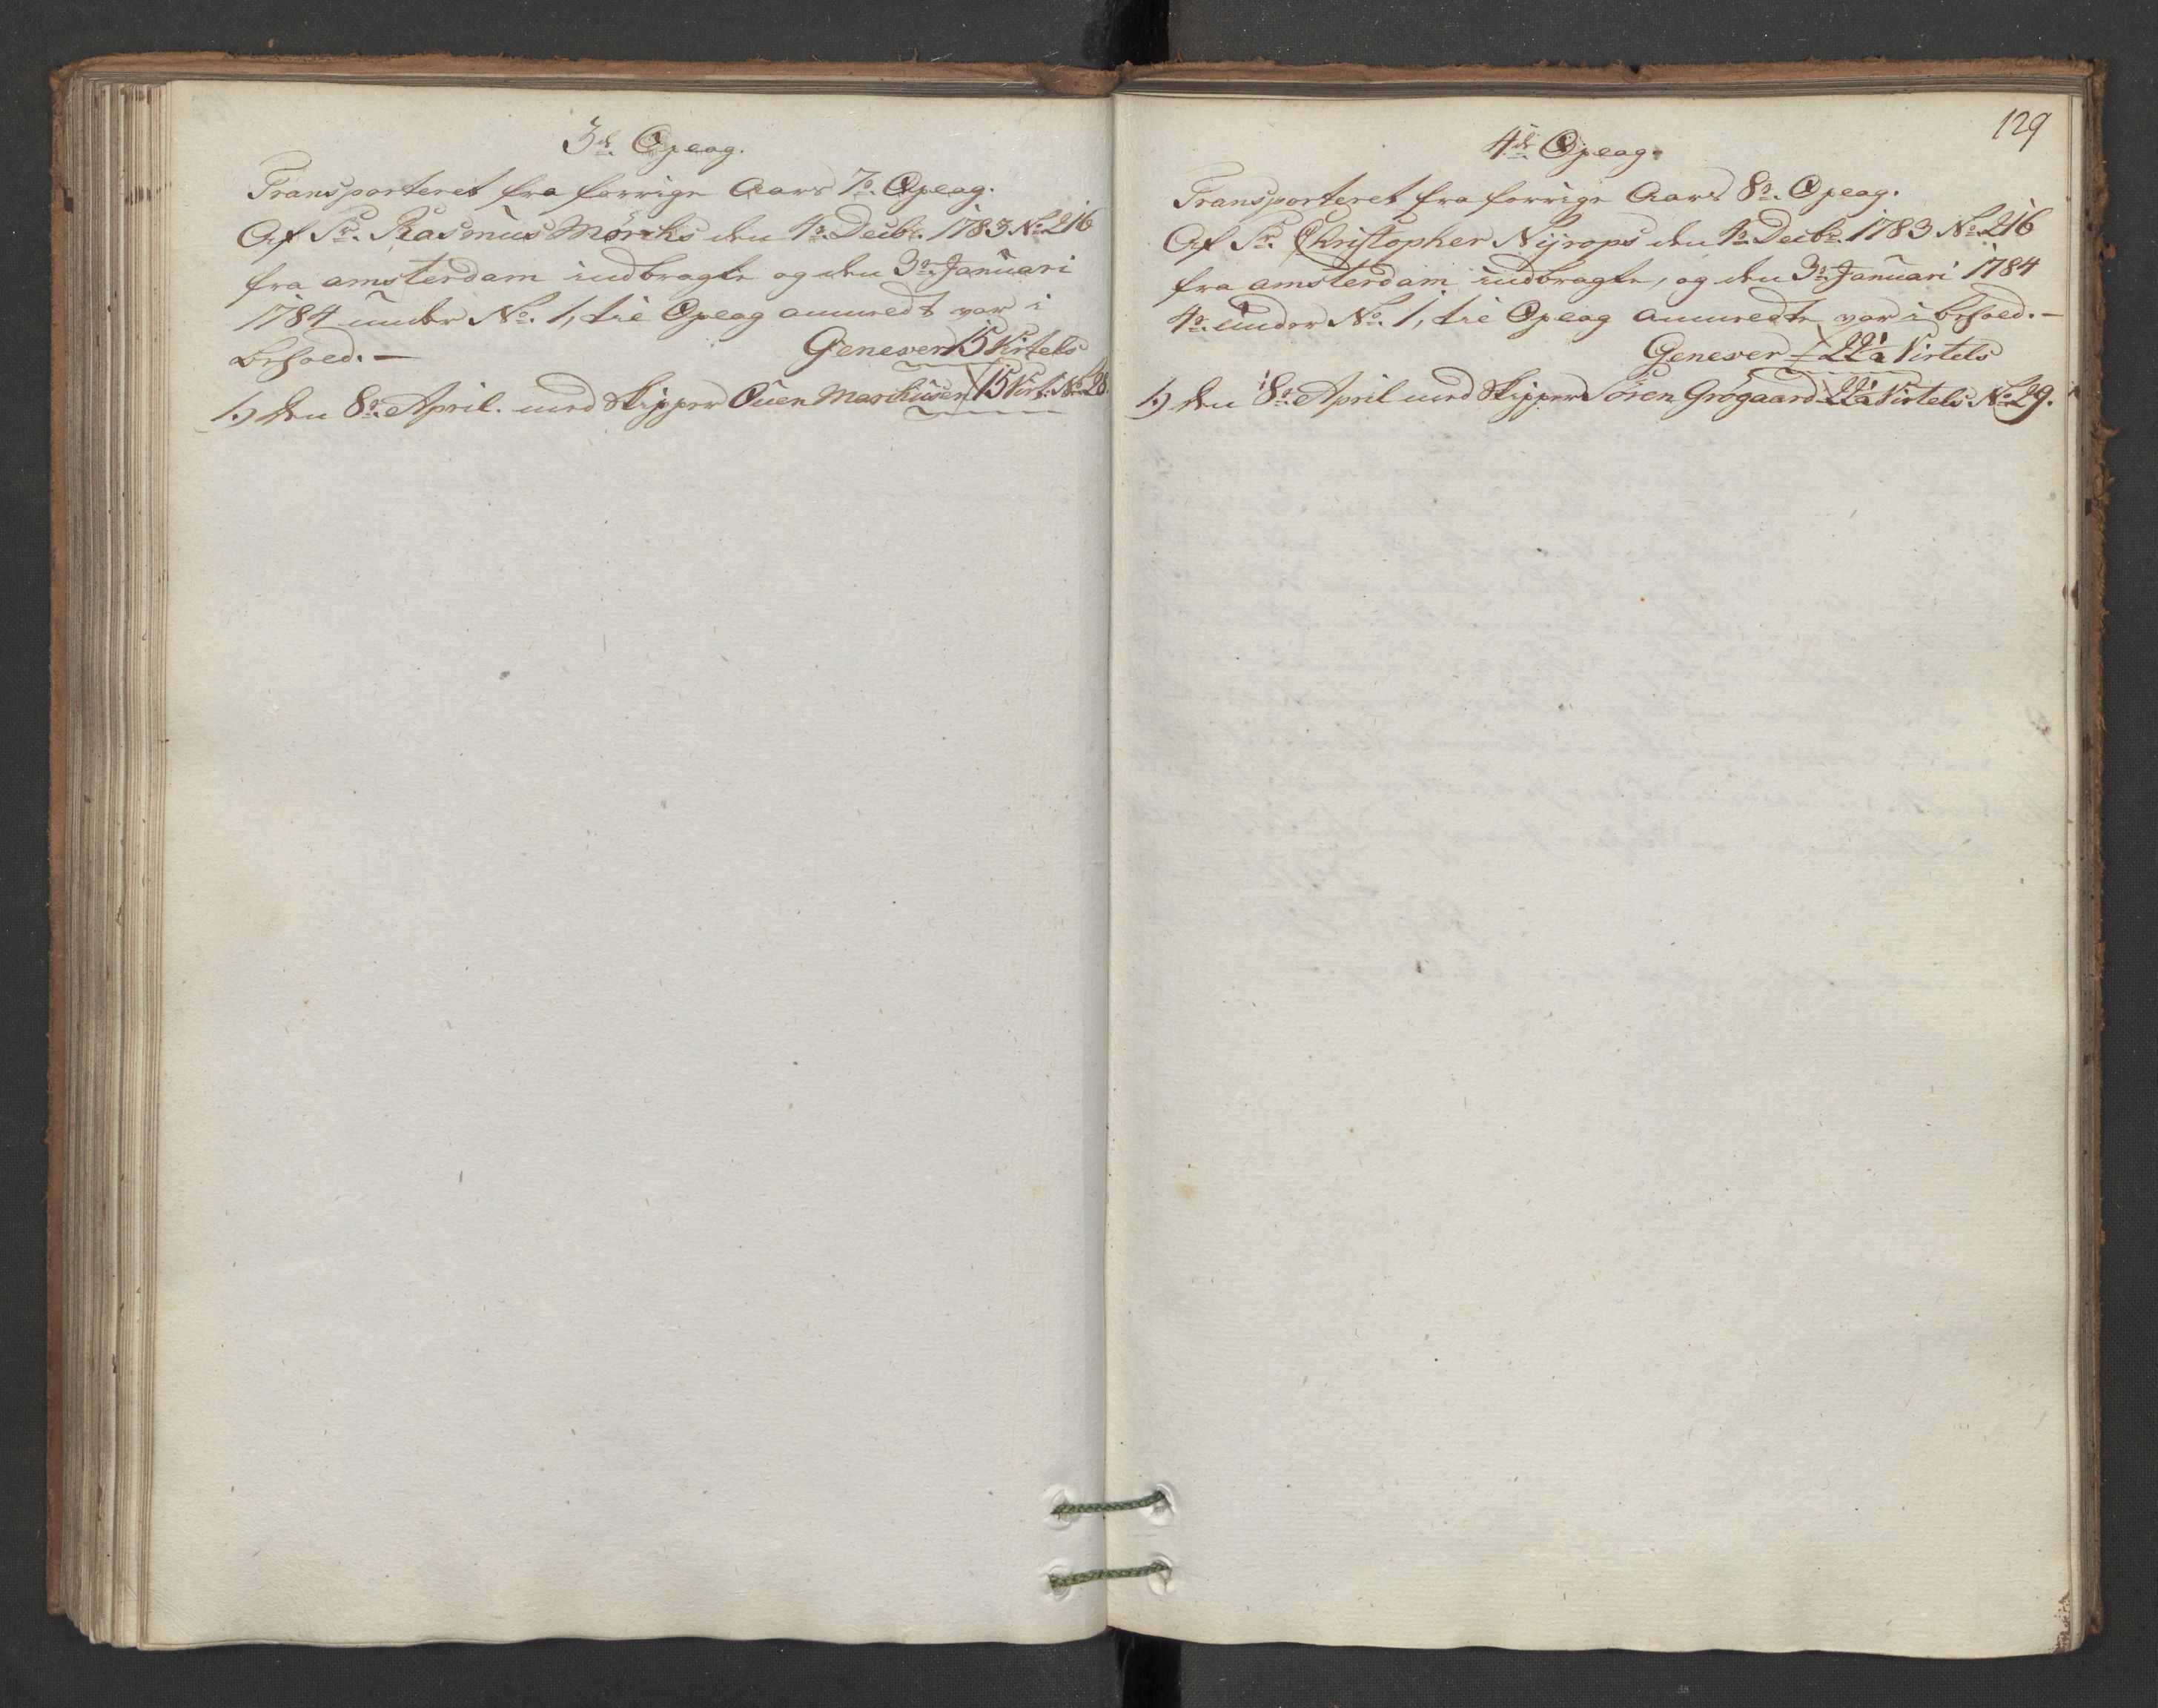 3de. Opeag.
Transporteret fra forrige Aars 7de. Opeag.
Af Sr. Rasmus Mörchs den 1de. Decbr. 1783 No. 216
fra amsterdam indbragte og den 3de. Januari
1784 under No. 1, tie Opeag anmeldt var i
behoed. —
Genever 15 Virtels
1.) den 8de. April. med Skipper Ouen Marchusen 15 Virt: No. 28.
129
4de. Opeag.
Transporteret fra forrige Aars 8de. Opeag.
Af Sr. Christopher Nyrops den 1de. Decbr. 1783 No. 216
fra amsterdam indbragte, og den 3de. Januari 1784
under No. 1, tie Opeag anmeldte var i behoed. —
Genever 22½ Virtels
1.) den 8de. April med Skipper Sören Grögaard 22½ Virtels No. 29.